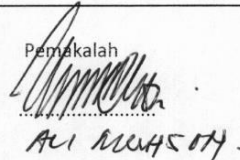 Pemakalah
Ali Muhson